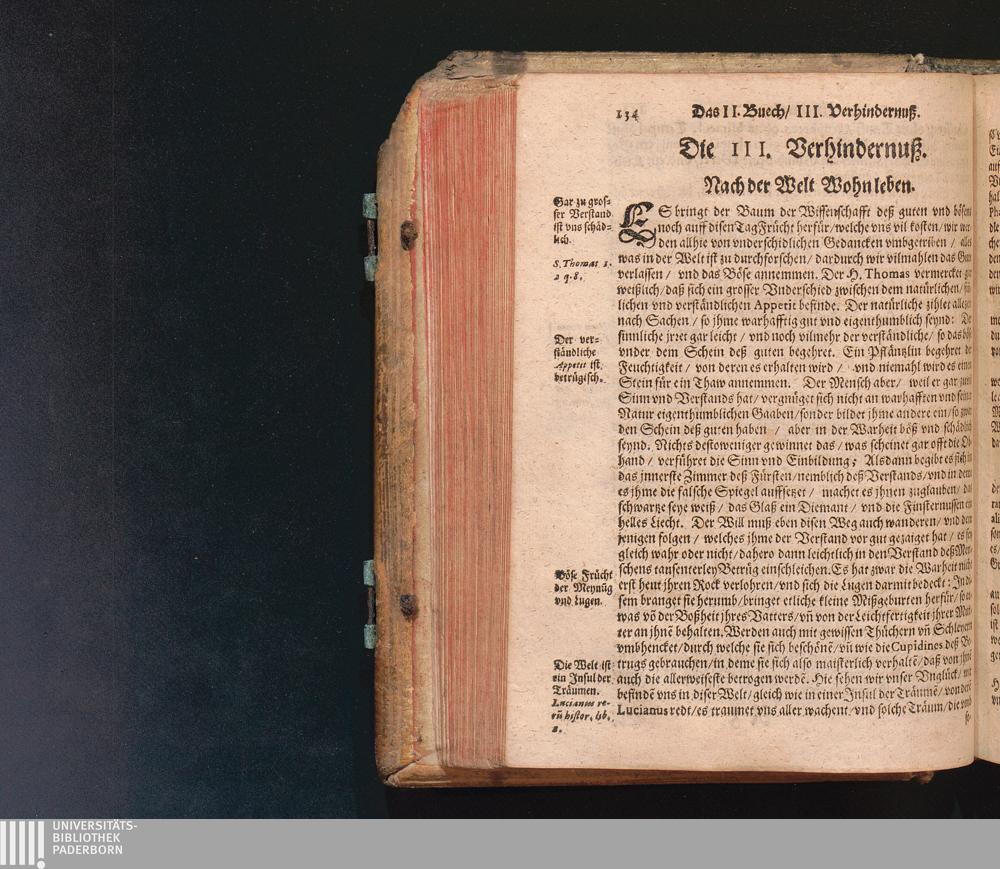 134 Das II. Buech/ III. Verhindernuß.
Die III. Verhindernuß.
Nach der Welt Wohn leben.
Gar zu gros-
ser Verstand
ist vns schäd-
lich.
S. Thomas 1.
2 q. 8.
Der ver-
ständliche
Appetit ist
betrügisch.
Böse Frücht
der Meynūg
vnd Lugen.
Die Welt ist
ein Insul der
Träumen.
Lucianus re-
rū histor. lib.
2.
ES bringt der Baum der Wissenschafft deß guten vnd bösen
noch auff disen Tag Frücht herfür/welche vns vil kosten/wir
den allhie von vnderschidlichen Gedancken vmbgetriben/ alles
was in der Welt ist zu durchforschen/ dardurch wir vilmahlen das
verlassen / vnd das Böse annemmen. Der H. Thomas vermercket
weißlich/ daß sich ein grosser Vnderschied zwischen dem natürlichen/
lichen vnd verständlichen Appetit befinde. Der natürliche zihlet
nach Sachen / so jhme warhafftig gut vnd eigenthumblich seynd:
sinnliche jrret gar leicht/ vnd noch vilmehr der verständliche/ so das
vnder dem Schein deß guten begehret. Ein Pfläntzlin begehret
Feuchtigkeit / von deren es erhalten wird / vnd niemahl wird es
Stein für ein Thaw annemmen. Der Mensch aber/ weil er gar
Sinn vnd Verstands hat/ vergnüget sich nicht an warhafften vnd
Natur eigenthumblichen Gaaben/sonder bildet jhme andere ein/so
den Schein deß guten haben / aber in der Warheit böß vnd
seynd. Nichts destoweniger gewinnet das / was scheinet gar offt die
hand / verführet die Sinn vnd Einbildung; Alsdann begibt es sich
das jnnerste Zimmer deß Fürsten/nemblich deß Verstands/vnd in
es jhme die falsche Spiegel auffsetzet/ machet es jhnen zuglauben/
schwartze seye weiß/ das Glaß ein Diemant / vnd die Finsternussen
helles Liecht. Der Will muß eben disen Weg auch wanderen/ vnd
jenigen folgen / welches jhme der Verstand vor gut gezaiget hat / es
gleich wahr oder nicht/dahero dann leichtlich in den Verstand deß
schens tausenterley Betrüg einschleichen. Es hat zwar die Warheit
erst heut jhren Rock verlohren/vnd sich die Lugen darmit bedeckt:
sem branget sie herumb/bringet etliche kleine Mißgeburten herfür/
was vō der Boßheit jhres Vatters/ vn̄ von der Leichtfertigkeit jhrer
ter an jhnē behalten. Werden auch mit gewissen Thüchern vn̄ Schleyern
vmbhencket/durch welche sie sich beschönē/vn̄ wie die Cupidines deß
trugs gebrauchen/in deme sie sich also maisterlich verhaltē/daß von
auch die allerweiseste betrogen werdē. Hie sehen wir vnser Vnglück/
befindē vns in diser Welt/gleich wie in einer Insul der Träumē/
Lucianus redt/es traumet vns aller wachent/vnd solche Träum/die
UNIVERSITÄTS-
BIBLIOTHEK
PADERBORN